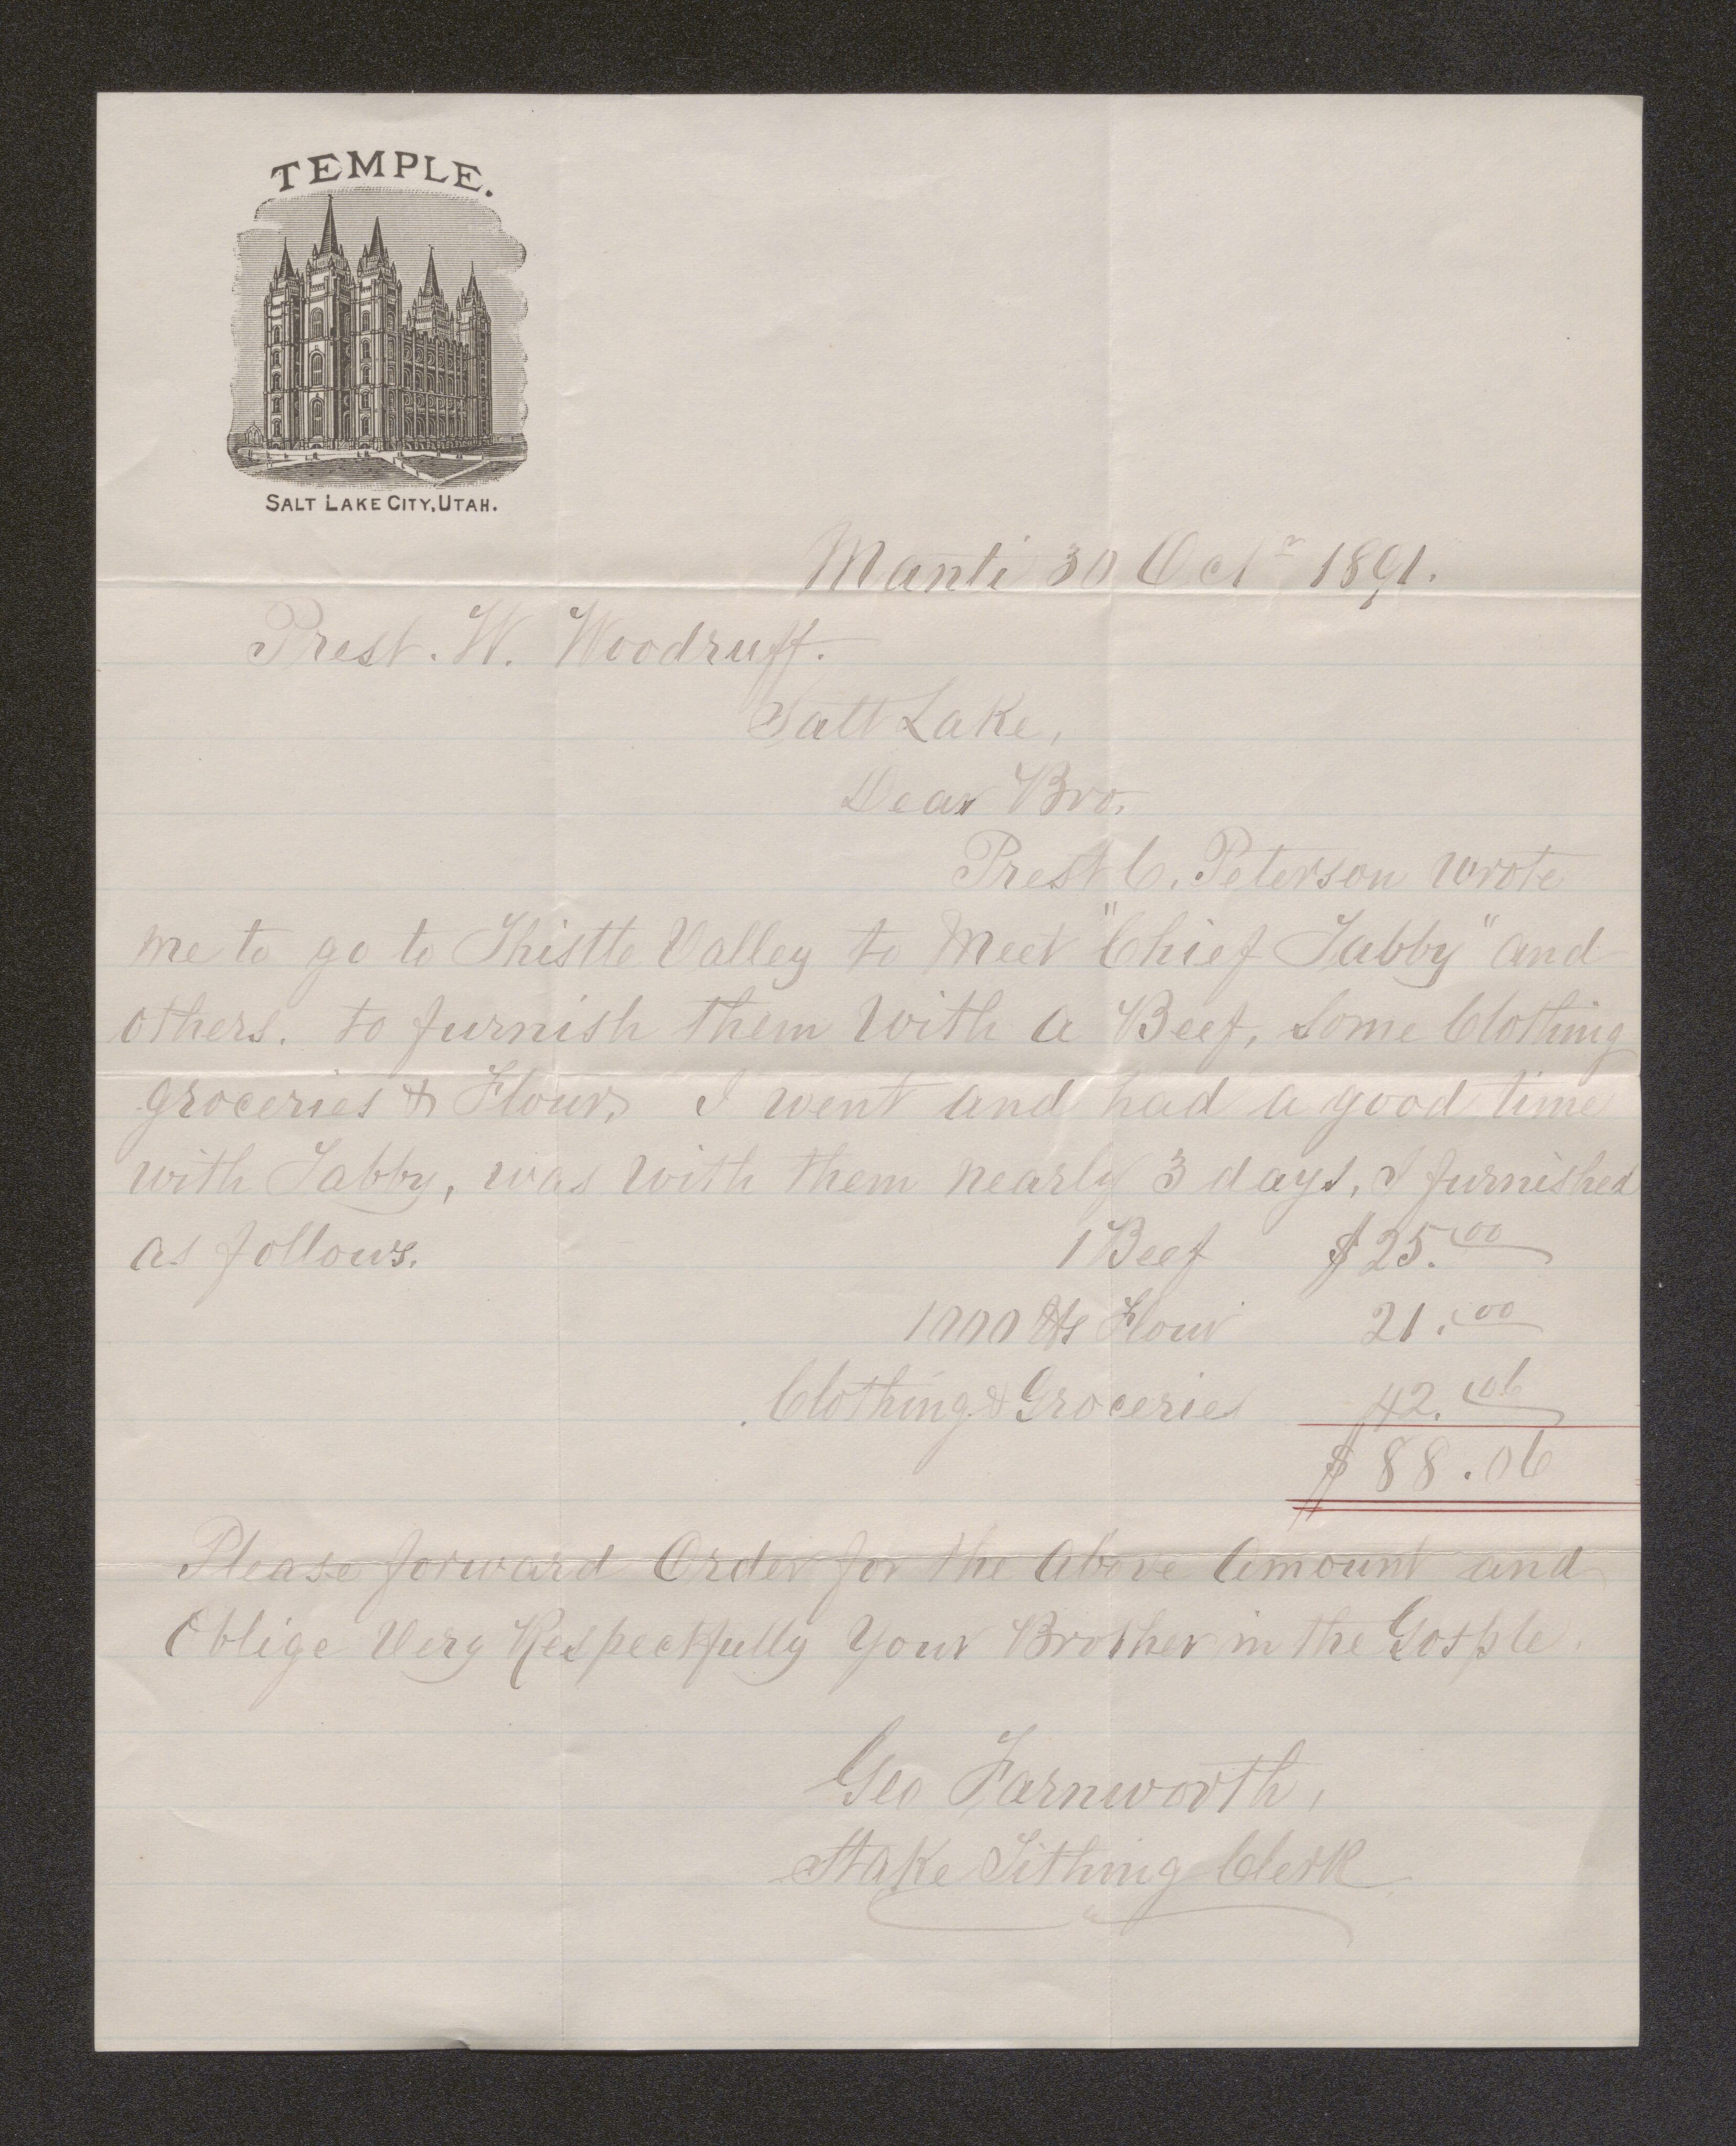 TEMPLE.
SALT LAKE CITY, UTAH.
Manti 30 Octr 1891.
Prest. W. Woodruff.
Salt Lake,
Dear Bro.
Prest C. Peterson wrote
me to go to Thistle Valley to Meet "Chief Tabby" and
others. to furnish them with a Beef, Some Clothing
groceries & Flour, I went and had a good time
with Tabby, was with them nearly 3 days, I furnished
as follows. 1 Beef $25.00
1000 lbs Flour 21.00
Clothing & Groceries 42.06
$88.06
Please forward Order for the above Amount and
Oblige Very Respectfully Your Brother in the Gosple.
Geo Farnworth,
Stake Tithing Clerk